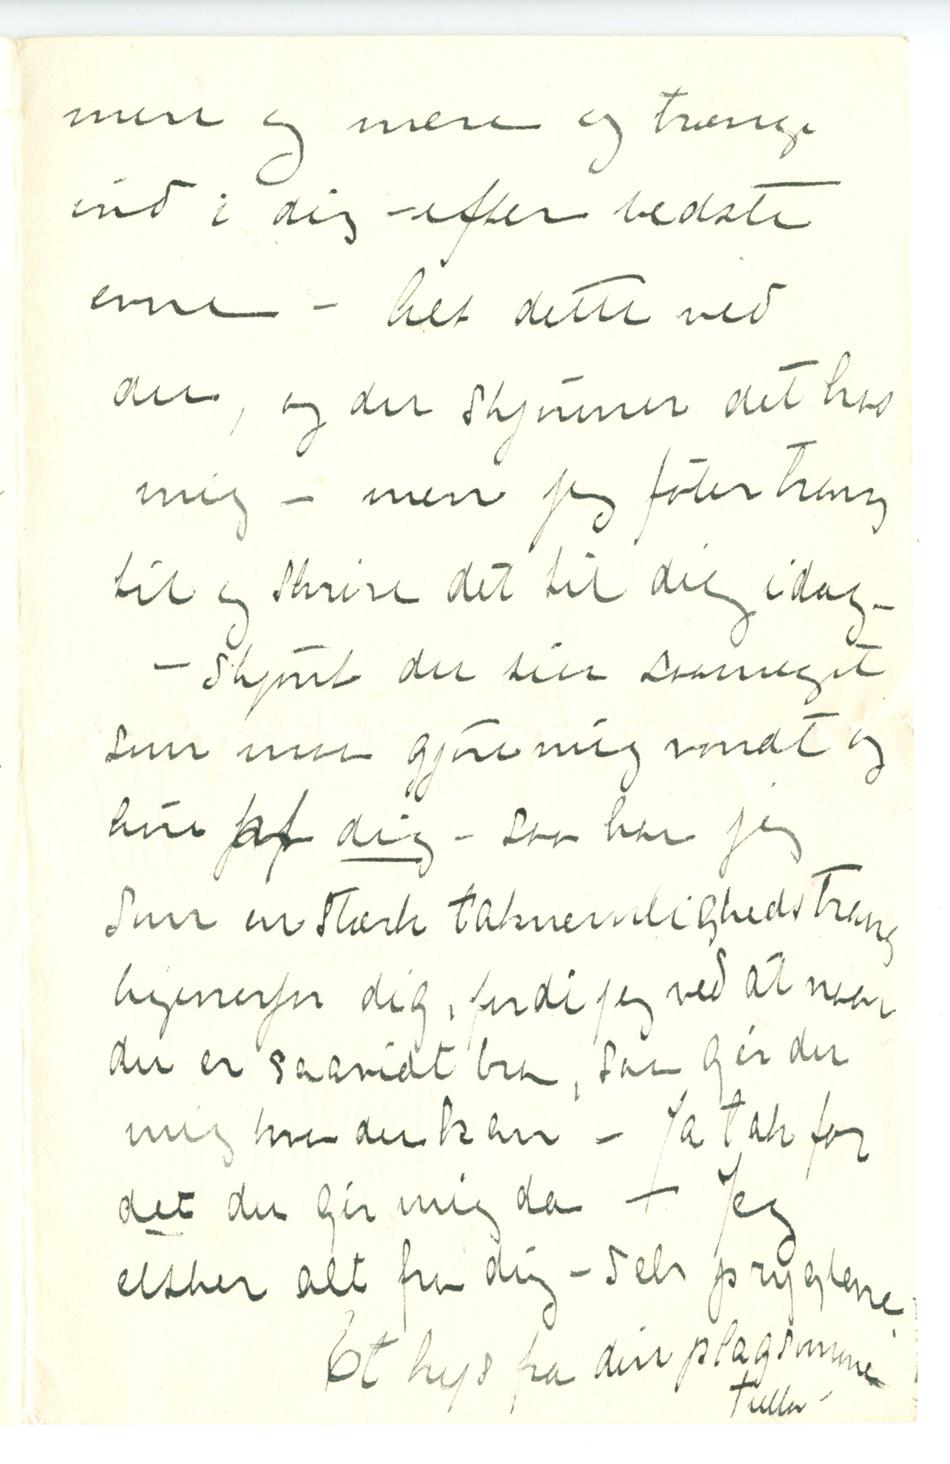 mere og mere og trænge
ind i dig – efter bedste
evne – Alt dette ved
du, og du skjønner det hos
mig – men jeg føler trang
til og skrive det til dig idag –
– Skjønt du sier saameget
som maa gjøre mig vondt og
høre af dig – saa har jeg
som en stærk taknemlighedstrang
ligeoverfor dig, fordi jeg ved at naar
du er saavidt bra, saa gir du
mig hva du kan – Ja tak for
det du gir mig da – Jeg
elsker alt fra dig – selv pryglene.
Et kys fra din plagsomme
Tulla